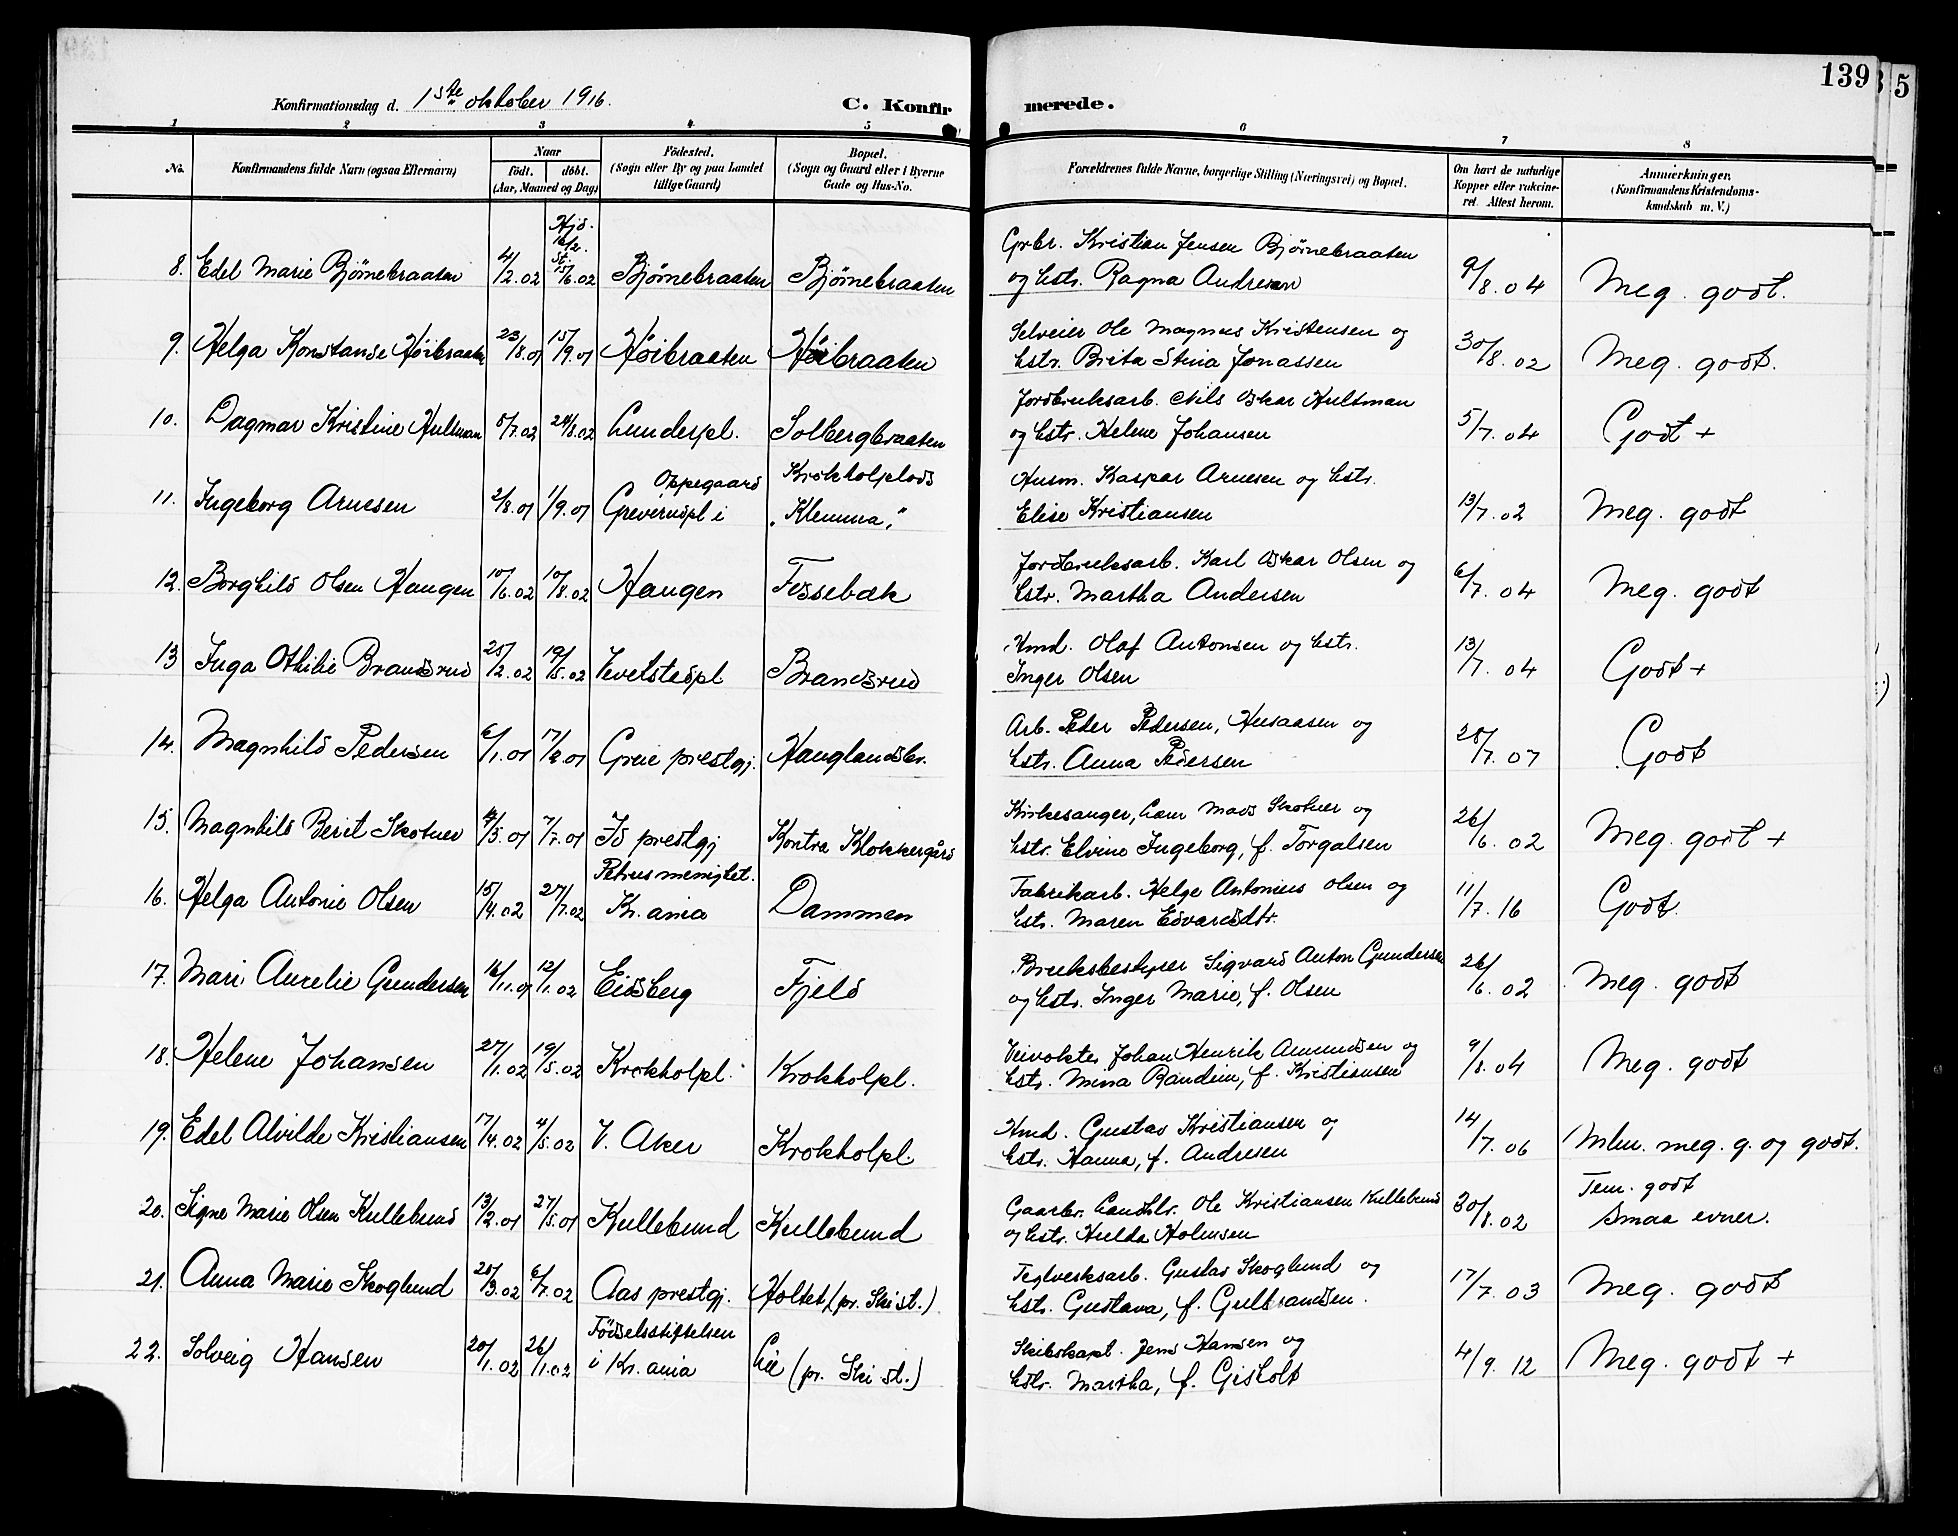 139
5
Konfirmationsdag d. 1ste oktober 1916.
C. Konfirmerede.
1 2 3 4 5 6 7 8
No. Konfirmandens fulde Navn (ogsaa Efternavn) Naar Födt. döbt. (Aar, Maaned og Dag) Födested. (Sogn eller By og paa Landet tillige Gaard) Bopæl. (Sogn og Gaard eller i Byerne Gade og Hus-No. Forældrenes fulde Navne, borgerlige Stilling (Næringsvei) og Bopæl. Om havt de naturlige Kopper eller vakcineret. Attest herom. Anmerkninger. (Konfirmandens Kristendomskundskab m. V.)
8. Edel Marie Bjørnebraaten 4/2.02 Hjd. 16/2. St. 15/6.02 Bjørnebraaten Bjørnebraaten Gpbr. Kristian Jensen Bjørnebraaten
og Hstr. Ragna Andresen 9/8.04 Meg. godt.
9. Helga Konstanse Høibraaten 23/8.01 15/9.01 Høibraaten Høibraaten Selveier Ole Magnus Kristensen og
Hstr. Brita Stina Jonassen 30/8.02 Meg. godt.
10. Dagmar Kristine Hultman 8/7.02 24/8.02 Lunderpl. Solbergbraaten Jordbruksarb. Nils Oskar Hultman
og Hstr. Helene Johansen 5/7.04 Godt +
11. Ingeborg Arnesen 2/8.01 1/9.01 Greverudpl i Oppegaard Krokholplads
"Klemma" Husm. Kaspar Arnesen og Hstr.
Elise Kristiansen 13/7.02 Meg. godt
12. Borghild Olsen Haugen 10/6.02 10/8.02 Haugen Fossebæk Jordbruksarb. Karl Oskar Olsen og
Hstr. Martha Andersen 6/7.04 Meg. godt
13 Inga Othilie Brandsrud 25/2.02 19/5.02 Vevelstadpl Brandsrud Hmd. Olaf Antonsen og Hstr.
Inger Olsen 13/7.04 Godt +
14. Magnhild Pedersen 6/1.01 Greie prestgj. Hauglandsbr. Arb. Peder Pedersen, Husaasen og
Hstr. Anna Pedersen 28/7.07 Godt
15. Magnhild Berit Skotner 4/5.01 7/7.01 Id prestgj Kontra Klokkergård Kirkesanger, Lær Mads Skotner og
Hstr. Elvine Ingeborg, f. Torgalsen 26/6.02 Meg. godt +
16. Helga Antonie Olsen 15/4.02 27/7.02 Petrus menighet.
Kr.ania Dammen Fabrikarb. Helge Antonius Olsen og
Hstr. Maren Edvardsdtr. 11/7.16 Godt.
17. Mari Aurelie Gundersen 16/11.01 12/1.02 Eidsberg Fjeld Bruksbestyrer Sigvard Anton Gundersen
og Hstr. Inger Marie, f. Olsen 26/6.02 Meg. godt
18. Helene Johansen 27/1.02 19/5.02 Krokholpl. Krokholpl. Veivokter Johan Henrik Amundsen og
Hstr. Mina Randine, f. Kristiansen 9/8.04 Meg. godt
19. Edel Alvilde Kristiansen 17/4.02 4/5.02 V. Aker Krokholpl. Hmd. Gustav Kristiansen og
Hstr. Hanna, f. Andresen 14/7.06 Mln. meg. g. og godt.
20. Signe Marie Olsen Kullebund 13/2.01 27/5.01 Kullebund Kullebund Gaarbr. Landhlr. Ole Kristiansen Kullebund
og Hstr. Hulda Holmsen 30/8.02 Tem. godt
Smaa evner.
21. Anna Marie Skoglund 28/3.02 6/7.02 Aas prestgj. Holtet (pr. Ski st.) Teglverksarb. Gustav Skoglund og
Hstr. Gustava, f. Gulbrandsen. 17/7.03 Meg. godt
22. Solveig Hansen 20/1.02 26/1.02 Fødselsstiftelsen
i Kr.ania Lie (pr. Ski st.) Skibskapt. Jens Hansen og
Hstr. Martha, f. Gisholt 4/9.12 Meg. godt +